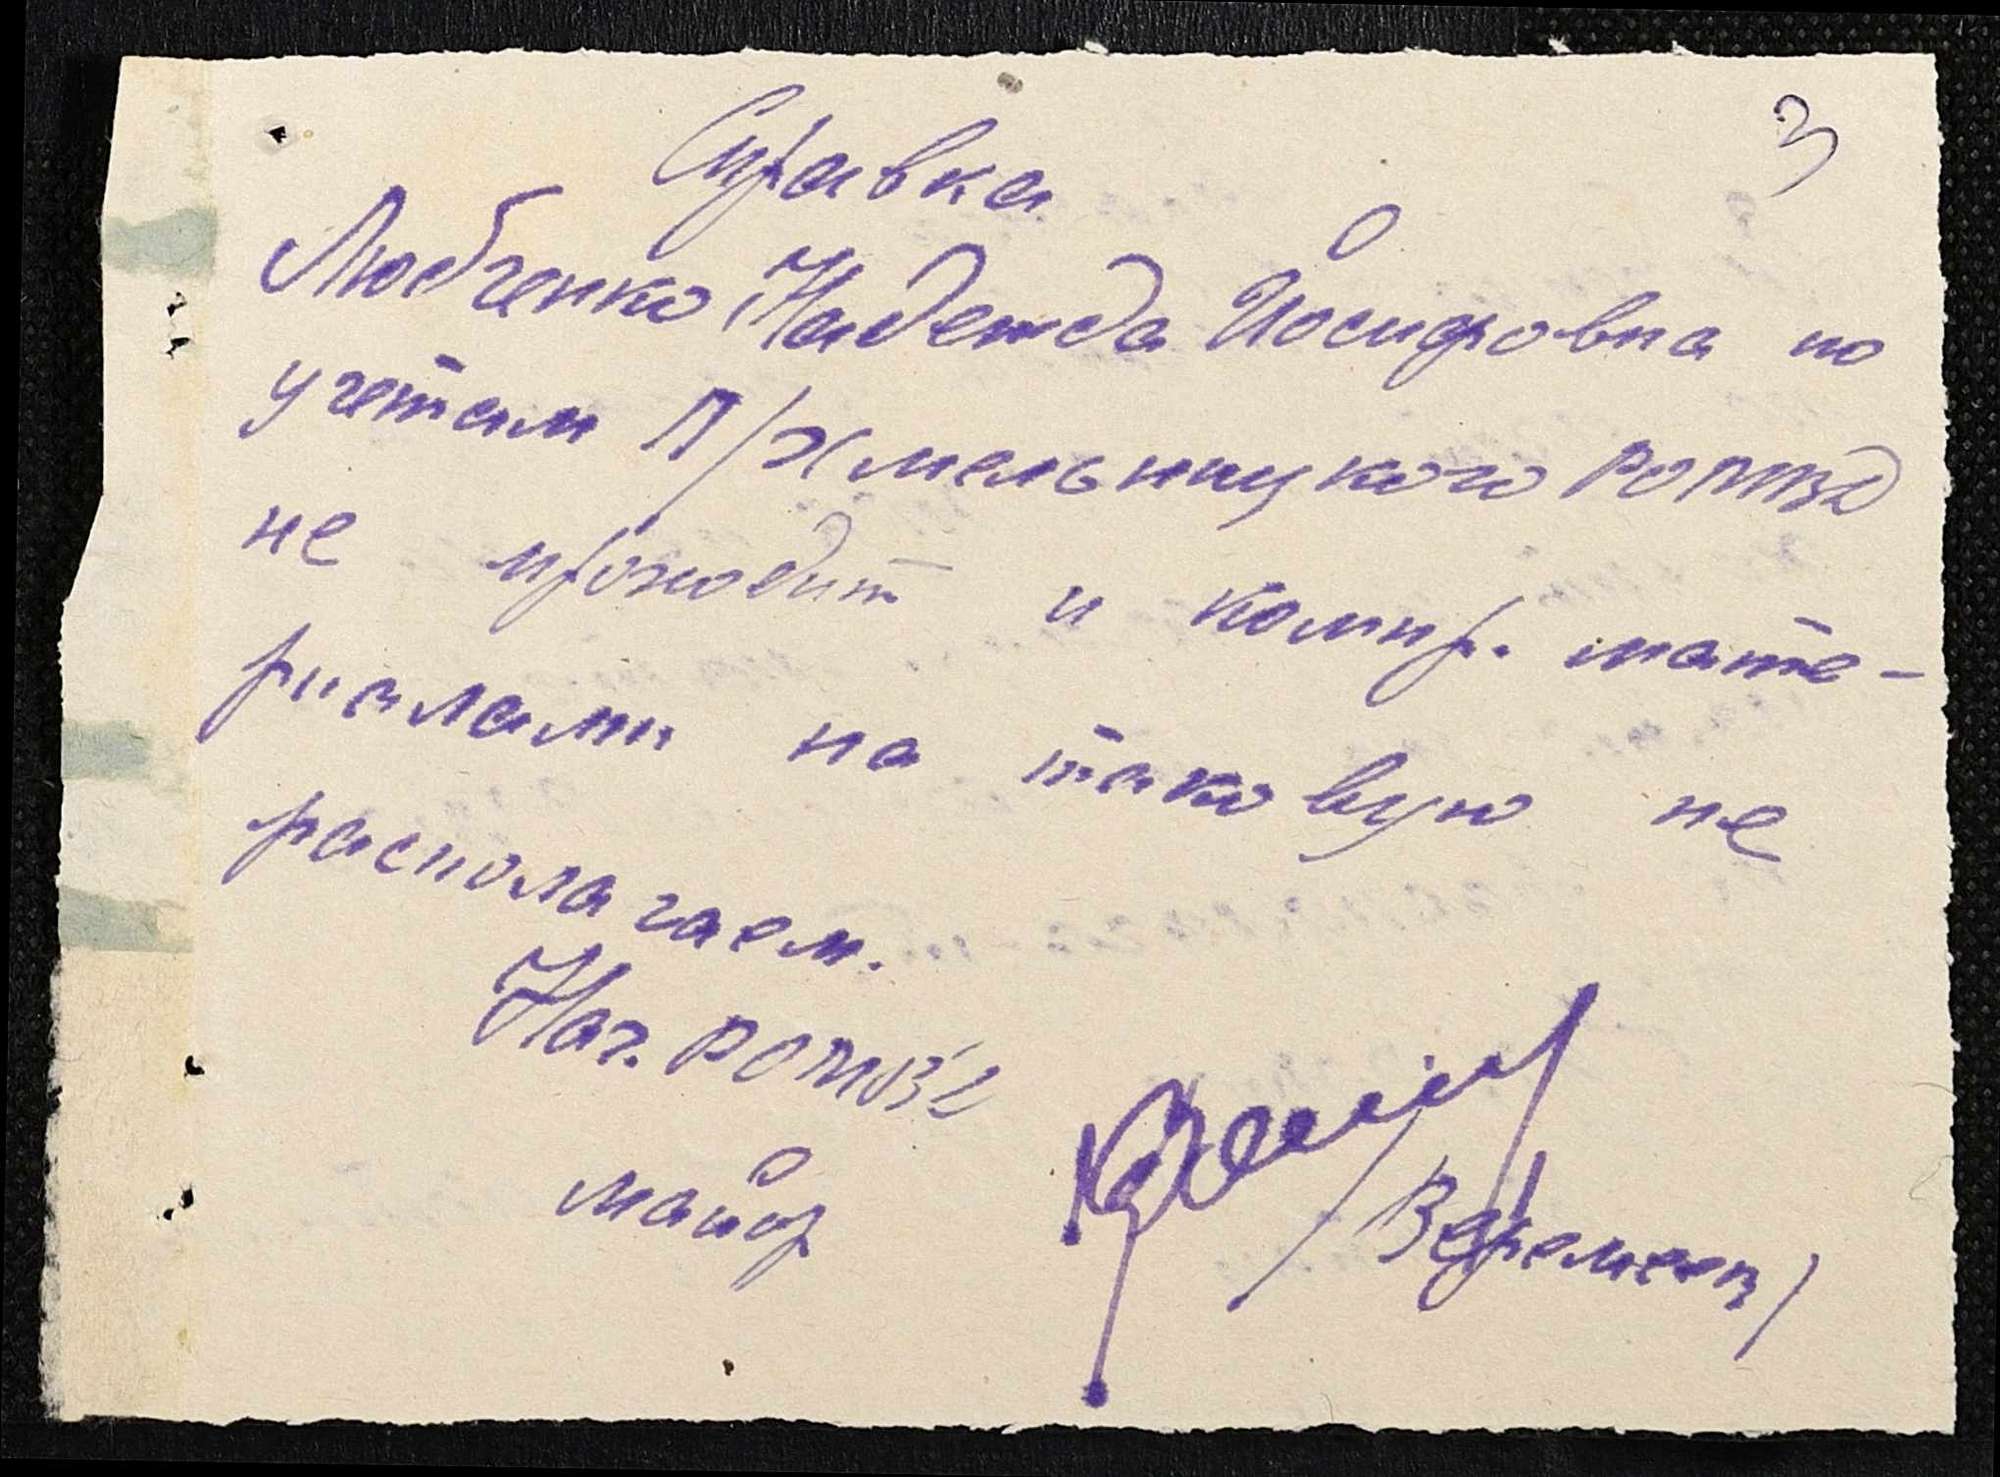 3
Справка
Любченко Надежда Йосифовна по
учетам П/Хмельницкого РОМВД
не проходит и компр. мате-
риалами на таковую не
располагаем.
Нач. РОМВД
майор
/Веремеев/